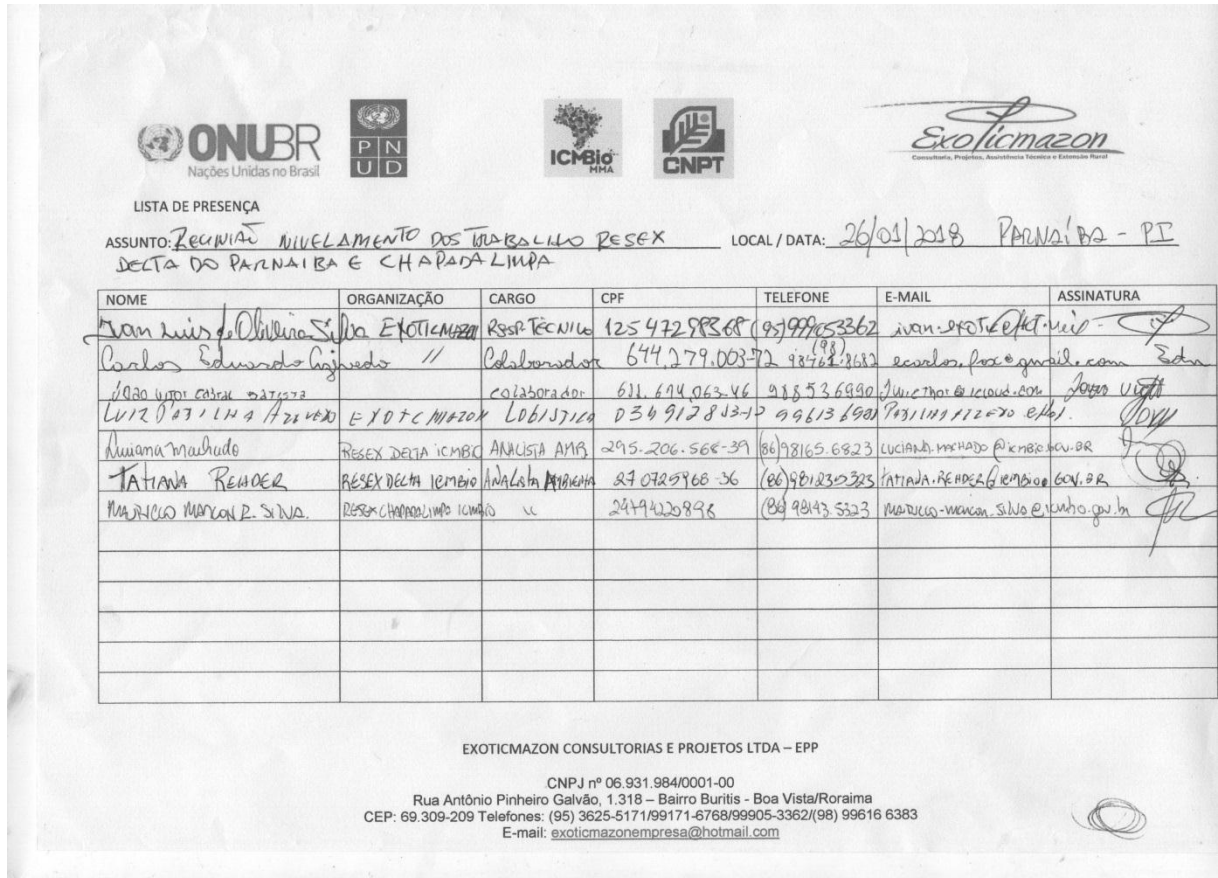 ONUBR
Nações Unidas no Brasil
PN
UD
ICMBio
MMA
CNPT
Exoticmazon
Consultoria, Projetos, Assistência Técnica e Extensão Rural
LISTA DE PRESENÇA
ASSUNTO: REUNIAÕ NIVELAMENTO DOS TRABALHO RESEX LOCAL / DATA: 26/01/2018 PARNAÍBA - PI
DELTA DO PARNAIBA E CHAPADA LIMPA
NOME ORGANIZAÇÃO CARGO CPF TELEFONE E-MAIL ASSINATURA
Ivan Luis de Oliveira Silva EXOTICMAZON RESP. TÉCNICO 12547298368
Carlos Eduardo // Colaborador 644.279.003-72 (98) 98461.8682 ecarlos.fox@gmail.com
João Vitor Cabral Batista colaborador 988536990
LUIZ AZEVEDO EXOTCMAZON LOGISTICA
Luciana Machado RESEX DELTA ICMBIO ANALISTA AMB. 295.206.568-39 (86)98165.6823 LUCIANA.MACHADO@ICMBIO.GOV.BR
TATIANA REHDER RESEX DELTA ICMBIO ANALISTA AMBIENTAL (86)981235323 TATIANA.REHDER@ICMBIO.GOV.BR
MAURICIO MARCON R. SILVA. RESEX CHAPADA LIMPA ICMBIO " 29794220896 (86) 98143.5323
EXOTICMAZON CONSULTORIAS E PROJETOS LTDA – EPP
CNPJ nº 06.931.984/0001-00
Rua Antônio Pinheiro Galvão, 1.318 – Bairro Buritis - Boa Vista/Roraima
CEP: 69.309-209 Telefones: (95) 3625-5171/99171-6768/99905-3362/(98) 99616 6383
E-mail: exoticmazonempresa@hotmail.com